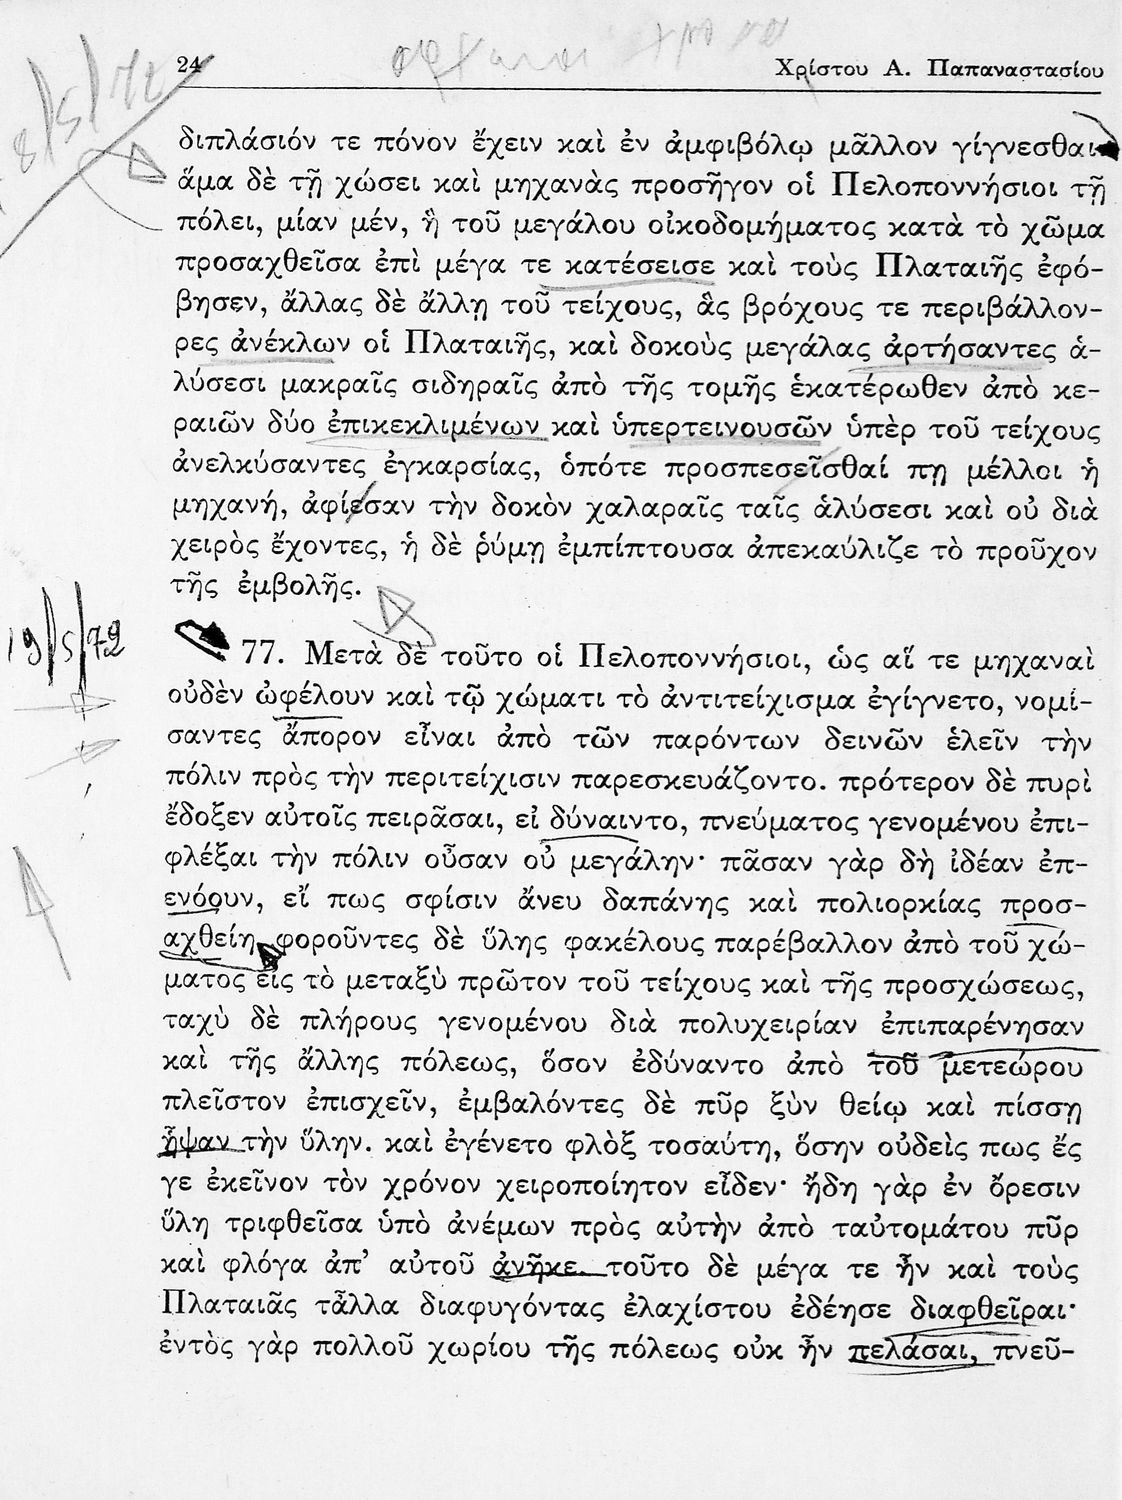 24
Χρίστου Α. Παπαναστασίου
8/5/72
διπλάσιόν τε πόνον ἔχειν καὶ ἐν ἀμφιβόλῳ μᾶλλον γίγνεσθαι
ἅμα δὲ τῇ χώσει καὶ μηχανὰς προσῆγον οἱ Πελοποννήσιοι τῇ
πόλει, μίαν μέν, ἣ τοῦ μεγάλου οἰκοδομήματος κατὰ τὸ χῶμα
προσαχθεῖσα ἐπὶ μέγα τε κατέσεισε καὶ τοὺς Πλαταιῆς ἐφό-
βησεν, ἄλλας δὲ ἄλλῃ τοῦ τείχους, ἃς βρόχους τε περιβάλλον-
ρες ἀνέκλων οἱ Πλαταιῆς, καὶ δοκοὺς μεγάλας ἀρτήσαντες ἁ-
λύσεσι μακραῖς σιδηραῖς ἀπὸ τῆς τομῆς ἑκατέρωθεν ἀπὸ κε-
ραιῶν δύο ἐπικεκλιμένων καὶ ὑπερτεινουσῶν ὑπὲρ τοῦ τείχους
ἀνελκύσαντες ἐγκαρσίας, ὁπότε προσπεσεῖσθαί πῃ μέλλοι ἡ
μηχανή, ἀφίεσαν τὴν δοκὸν χαλαραῖς ταῖς ἁλύσεσι καὶ οὐ διὰ
χειρὸς ἔχοντες, ἡ δὲ ῥύμῃ ἐμπίπτουσα ἀπεκαύλιζε τὸ προῦχον
τῆς ἐμβολῆς.
19/5/72
77. Μετὰ δὲ τοῦτο οἱ Πελοποννήσιοι, ὡς αἵ τε μηχαναὶ
οὐδὲν ὠφέλουν καὶ τῷ χώματι τὸ ἀντιτείχισμα ἐγίγνετο, νομί-
σαντες ἄπορον εἶναι ἀπὸ τῶν παρόντων δεινῶν ἑλεῖν τὴν
πόλιν πρὸς τὴν περιτείχισιν παρεσκευάζοντο. πρότερον δὲ πυρὶ
ἔδοξεν αὐτοῖς πειρᾶσαι, εἰ δύναιντο, πνεύματος γενομένου ἐπι-
φλέξαι τὴν πόλιν οὖσαν οὐ μεγάλην· πᾶσαν γὰρ δὴ ἰδέαν ἐπ-
ενόουν, εἴ πως σφίσιν ἄνευ δαπάνης καὶ πολιορκίας προσ-
αχθείη φοροῦντες δὲ ὕλης φακέλους παρέβαλλον ἀπὸ τοῦ χώ-
ματος εἰς τὸ μεταξὺ πρῶτον τοῦ τείχους καὶ τῆς προσχώσεως,
ταχὺ δὲ πλήρους γενομένου διὰ πολυχειρίαν ἐπιπαρένησαν
καὶ τῆς ἄλλης πόλεως, ὅσον ἐδύναντο ἀπὸ τοῦ μετεώρου
πλεῖστον ἐπισχεῖν, ἐμβαλόντες δὲ πῦρ ξὺν θείῳ καὶ πίσσῃ
ἧψαν τὴν ὕλην. καὶ ἐγένετο φλὸξ τοσαύτη, ὅσην οὐδείς πως ἔς
γε ἐκεῖνον τὸν χρόνον χειροποίητον εἶδεν· ἤδη γὰρ ἐν ὄρεσιν
ὕλη τριφθεῖσα ὑπὸ ἀνέμων πρὸς αὐτὴν ἀπὸ ταὐτομάτου πῦρ
καὶ φλόγα ἀπ' αὐτοῦ ἀνῆκε. τοῦτο δὲ μέγα τε ἦν καὶ τοὺς
Πλαταιᾶς τἆλλα διαφυγόντας ἐλαχίστου ἐδέησε διαφθεῖραι·
ἐντὸς γὰρ πολλοῦ χωρίου τῆς πόλεως οὐκ ἦν πελάσαι, πνεῦ-